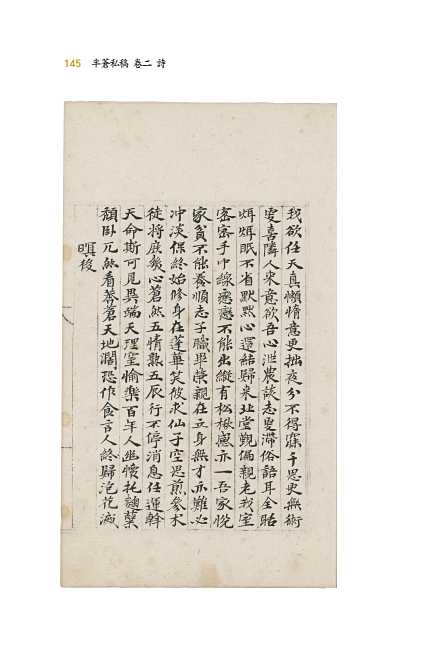 145 半蒼私稿 卷二 詩
我欲任天真懶惰意更拙夜分不得寐千思更無術
更喜隣人來意欲吾心泄農談志更滯俗語耳全聒
炯炯眠不省默默心還結歸來北堂覲偏親老我室
密密手中線不能出縱有松楸應亦一吾家悅
家貧不能養順志子職畢榮親在立身無才亦難必
冲淡保終始修身在蓬蓽笑彼求仙子空思煎參朮
徒將庶幾心蒼然五情熱五辰行不停消息任運斡
天命斯可見異端天理窒愉樂百年人幽懷托
頹臥兀然看莽蒼天地濶恐作食言人終歸泡花滅
暝後